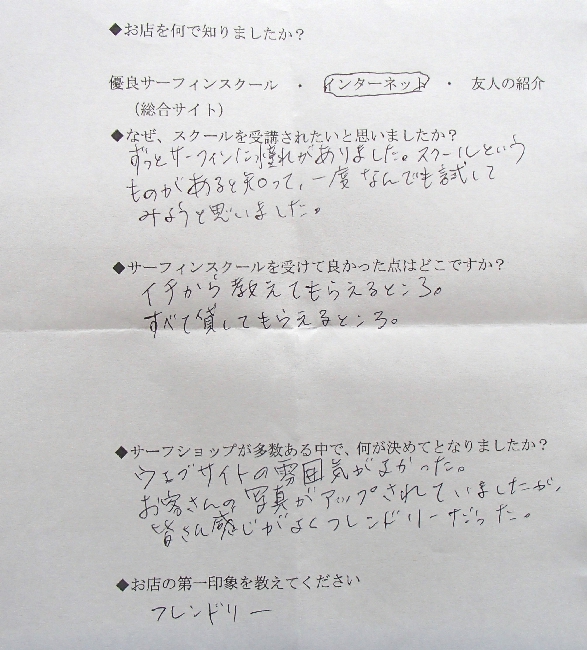 ◆お店を何で知りましたか？
優良サーフィンスクール ・ インターネット ・ 友人の紹介
（総合サイト）
◆なぜ、スクールを受講されたいと思いましたか？
ずっとサーフィンに憧れがありました。スクールという
ものがあると知って、一度なんでも試して
みようと思いました。
◆サーフィンスクールを受けて良かった点はどこですか？
イチから教えてもらえるところ。
すべて貸してもらえるところ。
◆サーフショップが多数ある中で、何が決めてとなりましたか？
ウェブサイトの雰囲気がよかった。
お客さんの写真がアップされていましたが、
皆さん感じがよくフレンドリーだった。
◆お店の第一印象を教えてください
フレンドリー